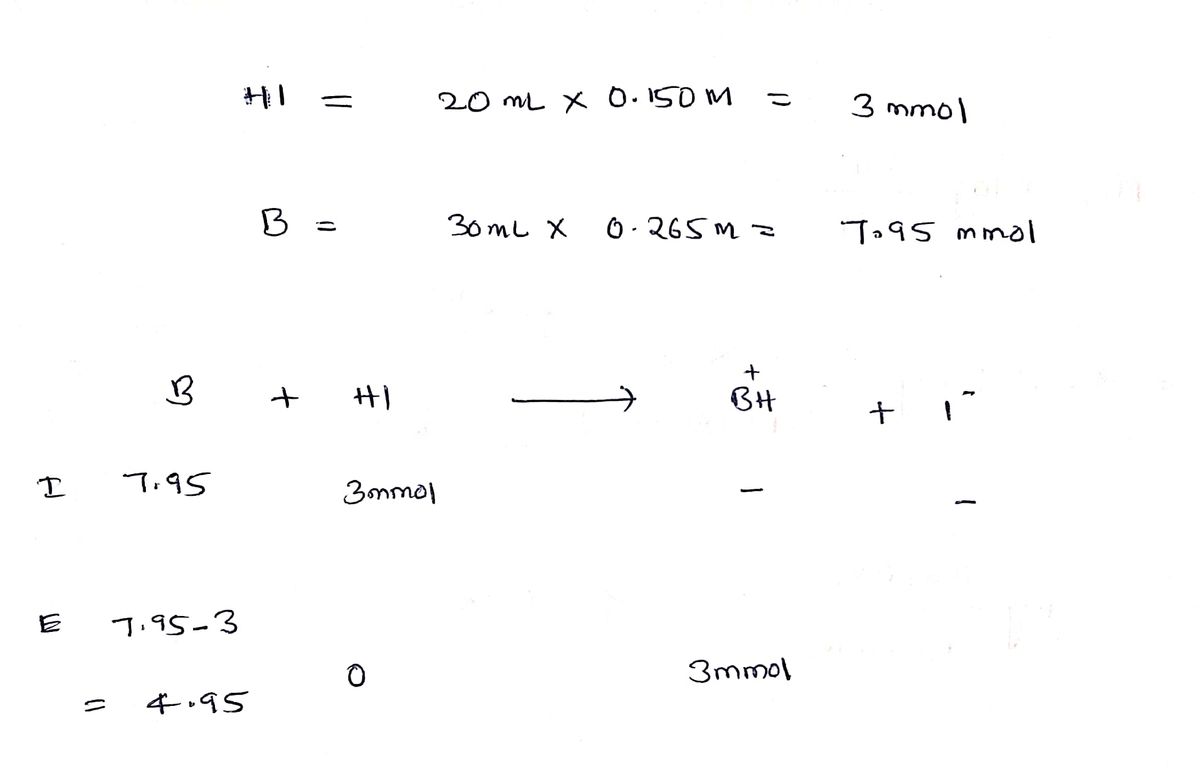 HI = 20 mL × 0.150 M = 3 mmol
B = 30 mL × 0.265 M = 7.95 mmol
B + HI ⟶ BH⁺ + I⁻
I 7.95 3mmol – –
E 7.95-3
0 3mmol
= 4.95